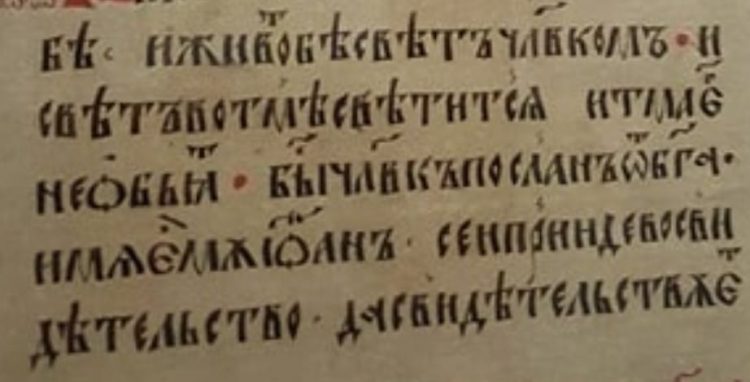 бѣ· иживⷮобѣсвѣтъчл҃вкомъ·и
свѣтъвотмѣсвѣтитсѧ итмаєⷢ҇
неѻбьѧⷮ· бы́чл҃вкъпосланъѿб҃га·
имѧємѫіѡ҃анъ· сеиприидевосви
дѣтельство· дасвидѣтельствѫєⷮ